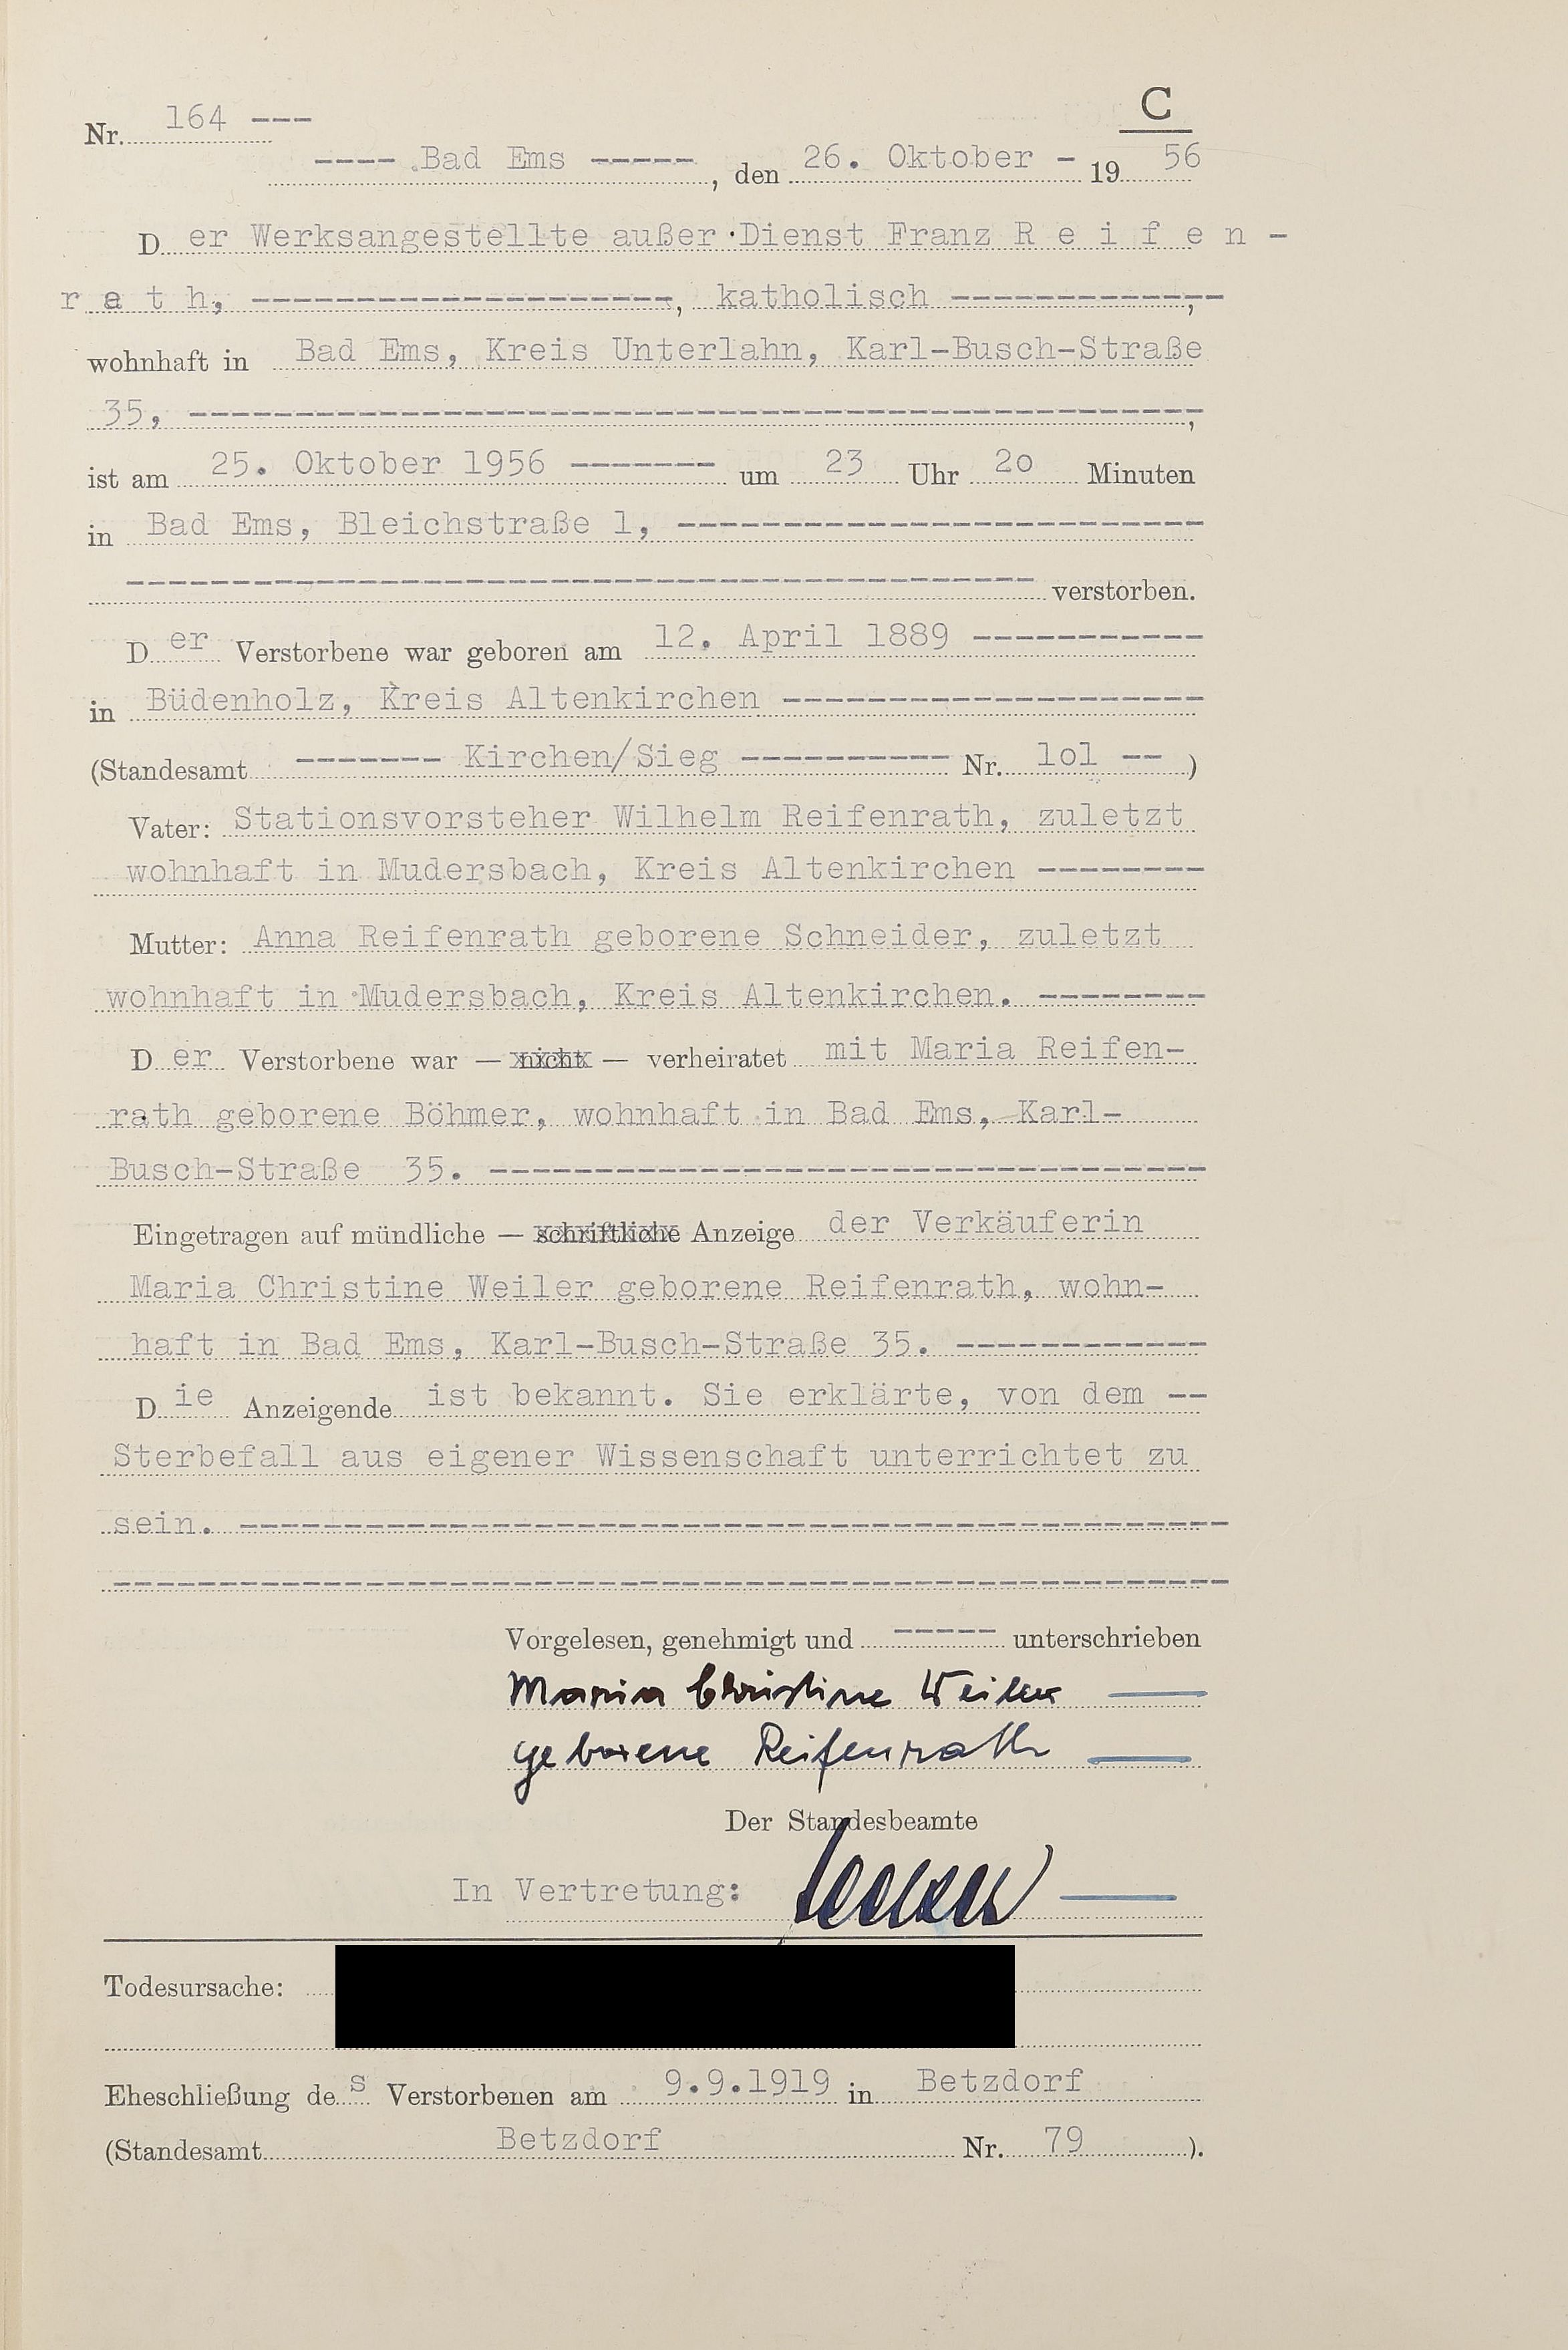 C
Nr. 164 ---
---- Bad Ems -----, den 26. Oktober - 19 56
D er Werksangestellte außer Dienst Franz R e i f e n -
r a t h, --------------------, katholisch ------------,-
wohnhaft in Bad Ems, Kreis Unterlahn, Karl-Busch-Straße
35, ------------------------------------------------,
ist am 25. Oktober 1956 ------- um 23 Uhr 2o Minuten
in Bad Ems, Bleichstraße 1, -------------------------
------------------------------------------- verstorben.
D er Verstorbene war geboren am 12. April 1889 -----------
in Büdenholz, Kreis Altenkirchen --------------------
(Standesamt ------- Kirchen/Sieg ---------- Nr. lol -- )
Vater: Stationsvorsteher Wilhelm Reifenrath, zuletzt
wohnhaft in Mudersbach, Kreis Altenkirchen --------
Mutter: Anna Reifenrath geborene Schneider, zuletzt
wohnhaft in Mudersbach, Kreis Altenkirchen. --------
D er Verstorbene war — nicht — verheiratet mit Maria Reifen-
rath geborene Böhmer, wohnhaft in Bad Ems, Karl-
Busch-Straße 35. ----------------------------------
Eingetragen auf mündliche — schriftliche Anzeige der Verkäuferin
Maria Christine Weiler geborene Reifenrath, wohn-
haft in Bad Ems, Karl-Busch-Straße 35. ------------
D ie Anzeigende ist bekannt. Sie erklärte, von dem --
Sterbefall aus eigener Wissenschaft unterrichtet zu
sein. -----------------------------------------------
-----------------------------------------------------
Vorgelesen, genehmigt und ----- unterschrieben
Maria Christine Weiler —
geborene Reifenrath —
Der Standesbeamte
In Vertretung: —
Todesursache:
Eheschließung de s Verstorbenen am 9.9.1919 in Betzdorf
(Standesamt Betzdorf Nr. 79 ).